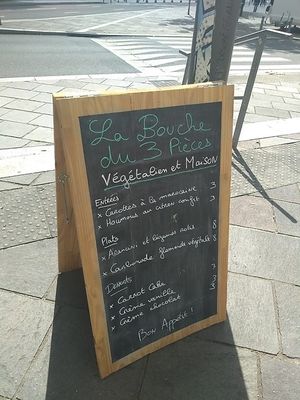 La Bouche
du 3 Pièces
Végétalien et Maison
Entrées
x Carottes à la marocaine 3
x Houmous au citron confit 3
Plats
x Arancini et légumes rotis 8
x Carbonade flamande végétale 8
Desserts
x Carrot Cake 3
x Crème vanille 3
x Crème chocolat 3
Bon Appétit !